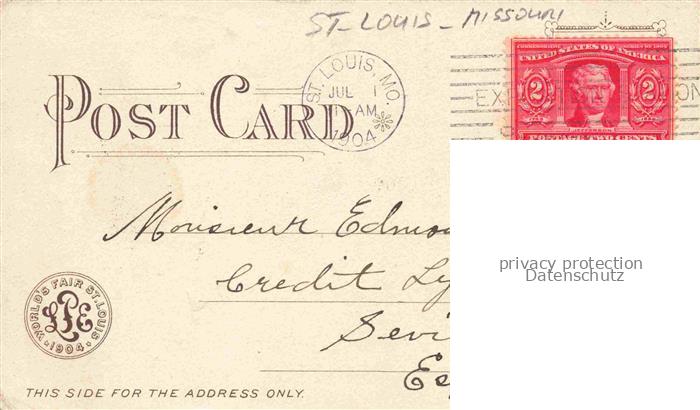 ST-LOUIS - MISSOURI
ST. LOUIS, MO.
JUL 1
AM
1904
COMMEMORATIVE SERIES OF 1904
UNITED STATES OF AMERICA
2 2
1803 1803
JEFFERSON
POSTAGE TWO CENTS
POST CARD
Monsieur Edmo
Credit Ly
Sevi
Es
privacy protection
Datenschutz
WORLD'S FAIR ST. LOUIS
LPE
1904
THIS SIDE FOR THE ADDRESS ONLY.